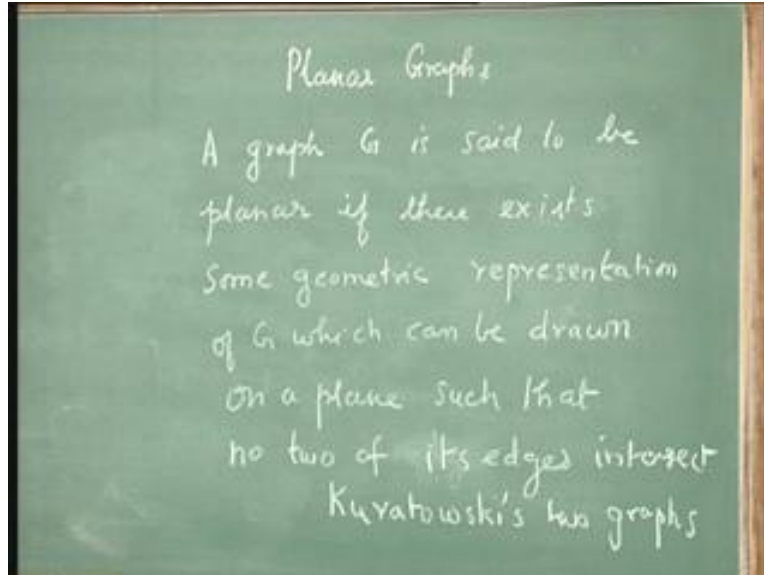 Planar Graphs
A graph G is said to be
planar if there exists
some geometric representation
of G which can be drawn
on a plane such that
no two of its edges intersect
Kuratowski's two graphs